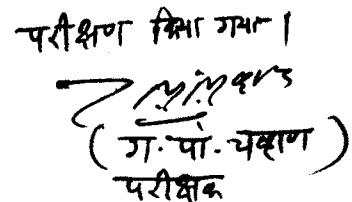 परीक्षण किया गया।
(ग. पां. चव्हाण)
परीक्षक